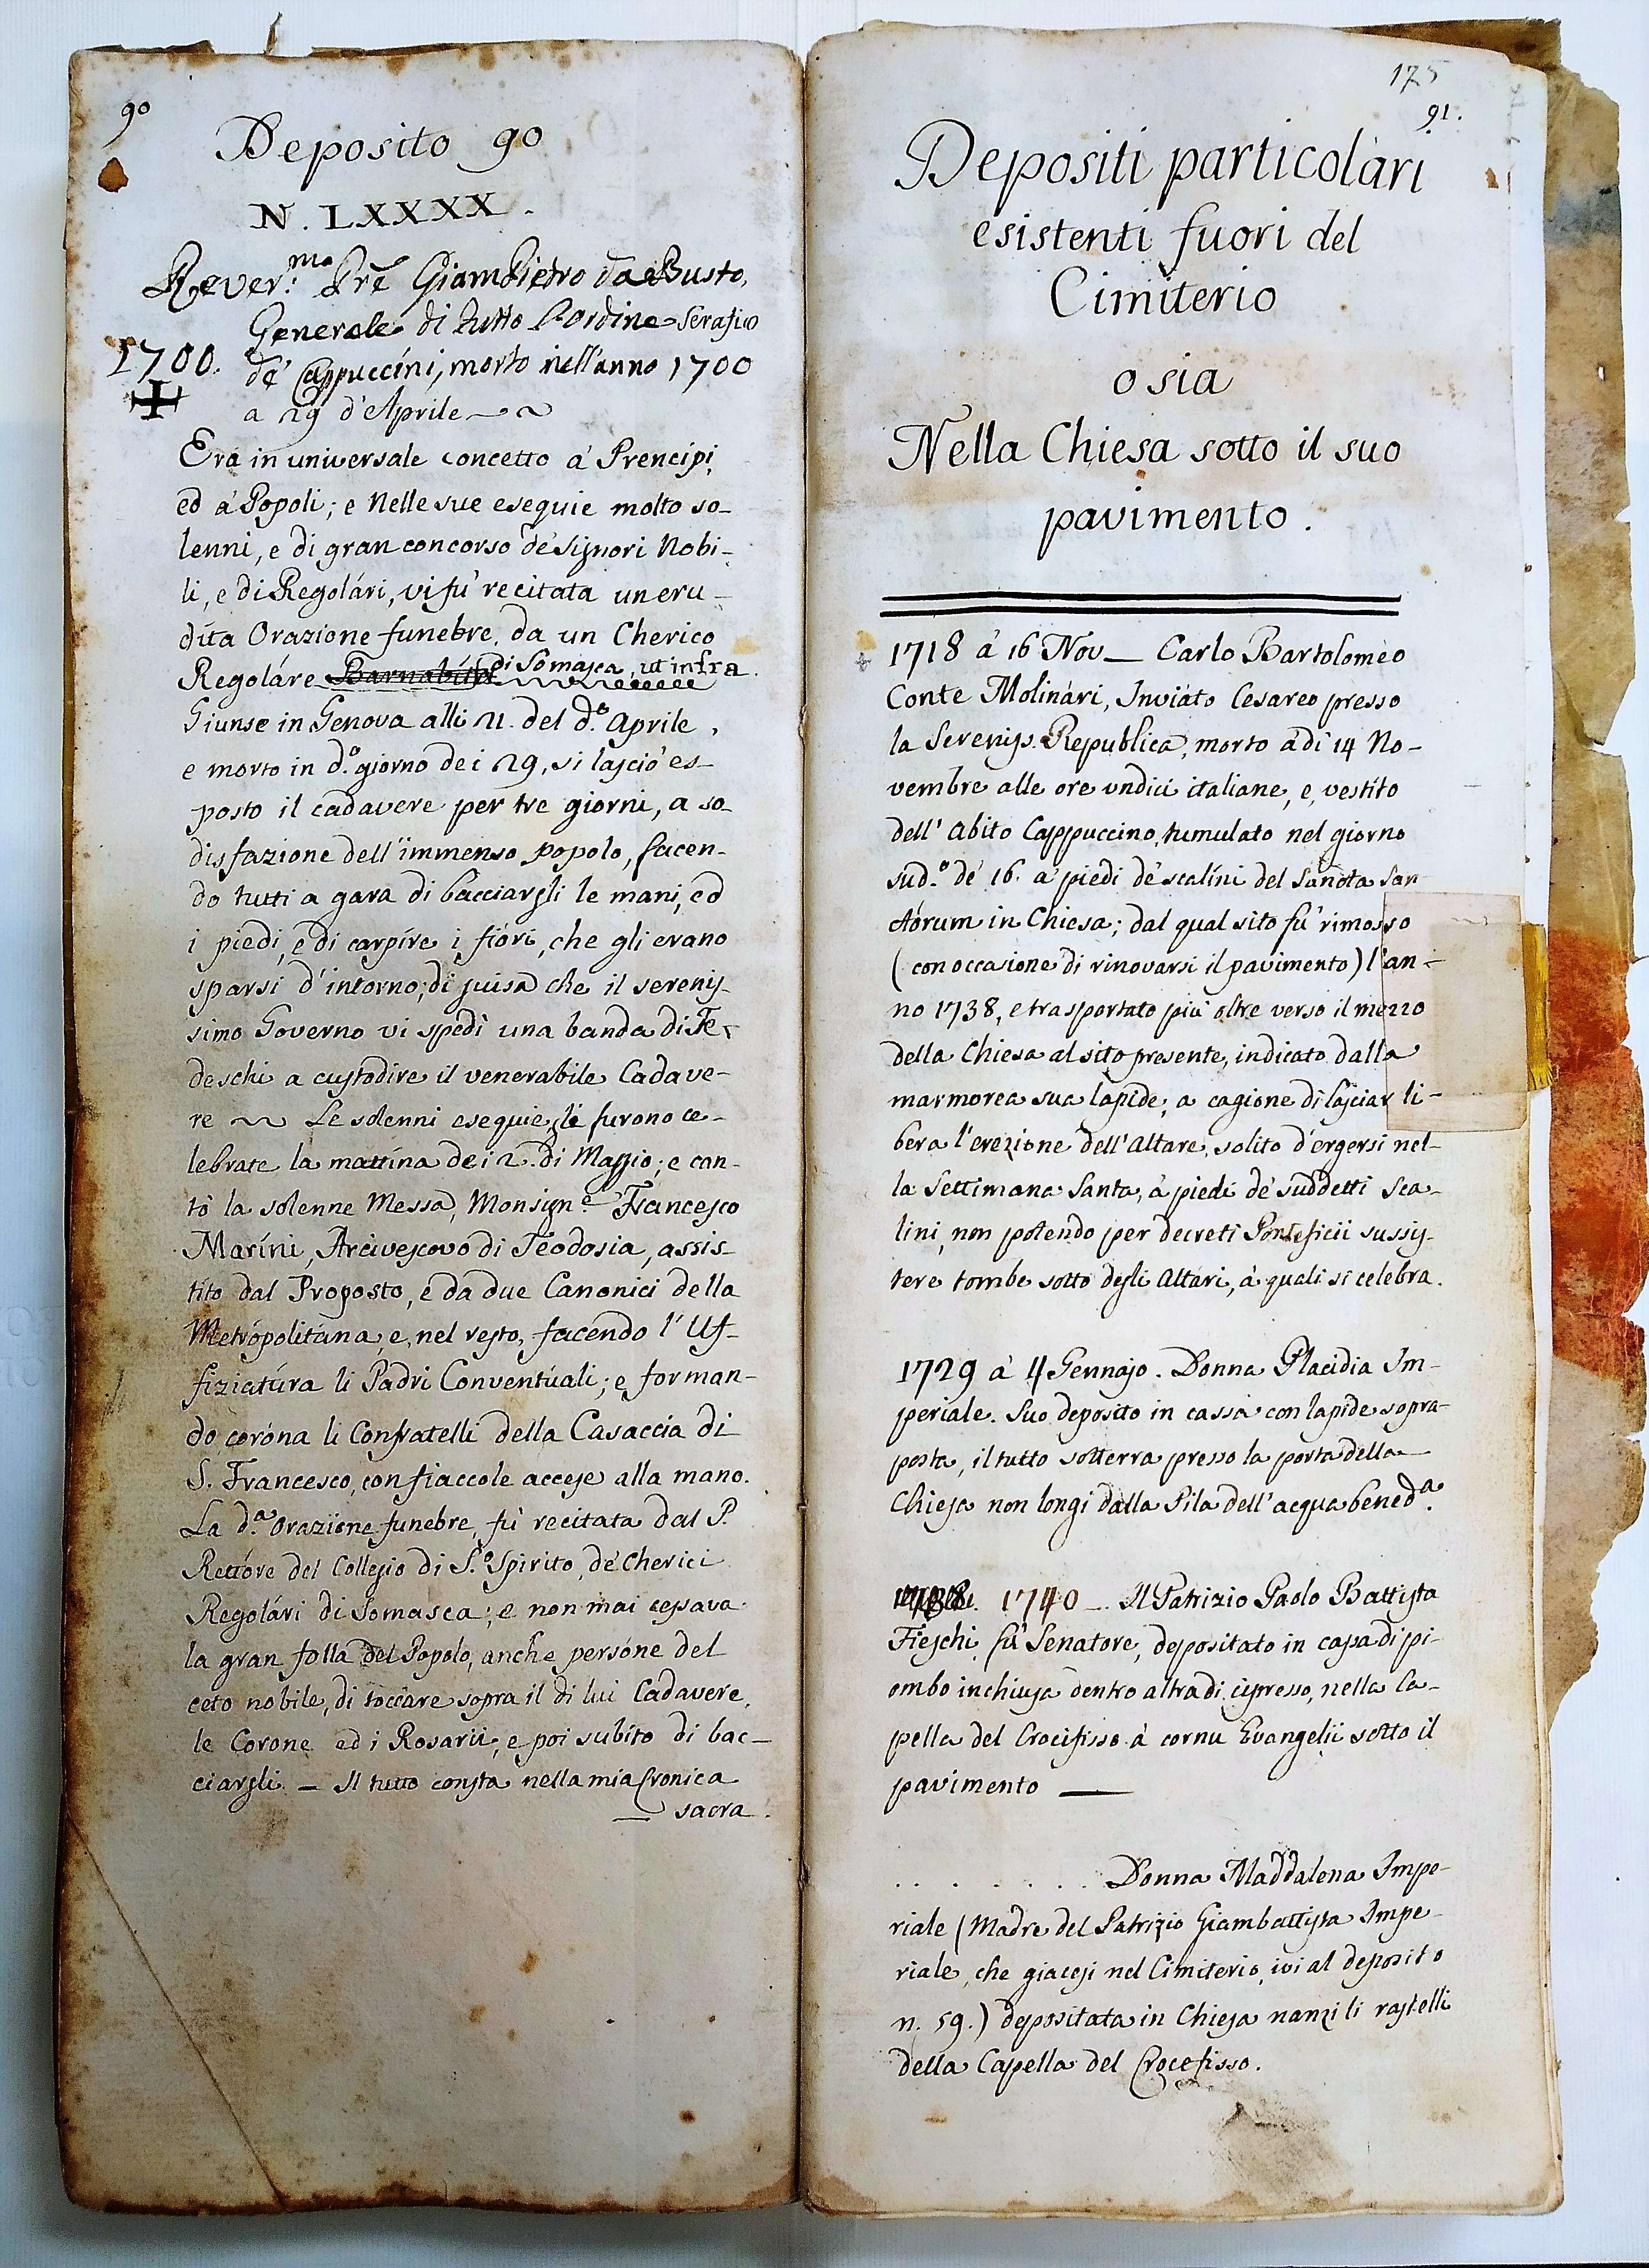 90
Deposito 90
N. LXXXX.
Rever.mo Prê GiamPietro da Busto,
Generale di tutto l'ordine Serafico
1700. de' Cappuccini, morto nell'anno 1700
a 29 d'Aprile
Era in universale concetto à Prencipi,
ed à Popoli; e nelle sue esequie molto so-
lenni, e di gran concorso de' Signori Nobi-
li, e di Regolári, vi fu' recitata un eru-
dita Orazione funebre, da un Cherico
Regoláre Barnabita di Somasca, ut infra.
Giunse in Genova alli 21. del d.o Aprile,
e morto in d.o giorno dei 29, si lasciò es-
posto il cadavere per tre giorni, a so-
disfazione dell'immenso popolo, facen-
do tutti a gara di bacciargli le mani, ed
i piedi, e di carpíre i fióri, che gli erano
sparsi d'intorno; di guisa che il serenis-
simo Governo vi spedì una banda di Te-
deschi a custodire il venerabile Cadave-
re ~ Le solenni esequie gli furono ce-
lebrate la mattína dei 2. di Maggio; e can-
tò la solenne Messa, Monsign.e Francesco
Maríni, Arcivescovo di Teodosia, assis-
tito dal Proposto, e da due Canonici della
Metropolitána, e, nel resto, facendo l'Uf-
fiziatúra li Padri Conventúali; e forman-
do coróna li Confratelli della Casaccia di
S. Francesco, con fiaccole accese alla mano.
La d.a Orazione funebre, fù recitata dal P.
Rettóre del Collegio di S.o Spirito, de' Cherici
Regolári di Somasca; e non mai cessava
la gran folla del Popolo, anche persóne del
ceto nobile, di toccare sopra il di lui Cadavere,
le Corone ed i Rosarii; e poi subíto di bac-
ciargli — Il tutto consta nella mia Cronica
— sacra.
175
91.
Depositi particolàri
esistenti fuori del
Cimiterio
o sia
Nella Chiesa sotto il suo
pavimento.
1718 à 16 Nov — Carlo Bartolomèo
Conte Molinári, Inviáto Cesareo presso
la Sereniss. Republica, morto adì 14 No-
vembre alle ore undici italiane, e, vestíto
dell' abito Cappuccino, tumulato nel giorno
sud.o de' 16. a' piedi de' scalíni del Sancta San-
ctórum in Chiesa; dal qual sito fu' rimosso
(con occasione di rinovarsi il pavimento) l'an-
no 1738, e trasportato più oltre verso il mezzo
della Chiesa al sito presente, indicato dalla
marmorea sua lapide; a cagione di lasciar li-
bera l'erezione dell'Altare, solito d'ergersi nel-
la Settimana Santa, à piedi de' suddetti sca-
lini, non potendo per decreti Ponteficii sussis-
tere tombe sotto degli Altári, à quali si celebra.
1729 à 4 Gennajo. Donna Placidia Im-
periale. Suo deposito in cassa con lapide sopra-
posta, il tutto sotterra presso la porta della
Chiesa non longi dalla Pila dell'acqua bened.a
1740 — Il Patrizio Paolo Battista
Fieschi, fù Senatore, depositato in cassa di pi-
ombo inchiusa dentro altra di cipresso, nella Ca-
pella del Crocifisso à cornu Evangelii sotto il
pavimento —
. . . . . . . Donna Maddalena Impe-
riale (Madre del Patrizio Giambattista Impe-
riale, che giacesi nel Cimiterio, ivi al deposito
n. 59.) depositata in Chiesa nanzi li rastelli
della Capella del Crocefisso.